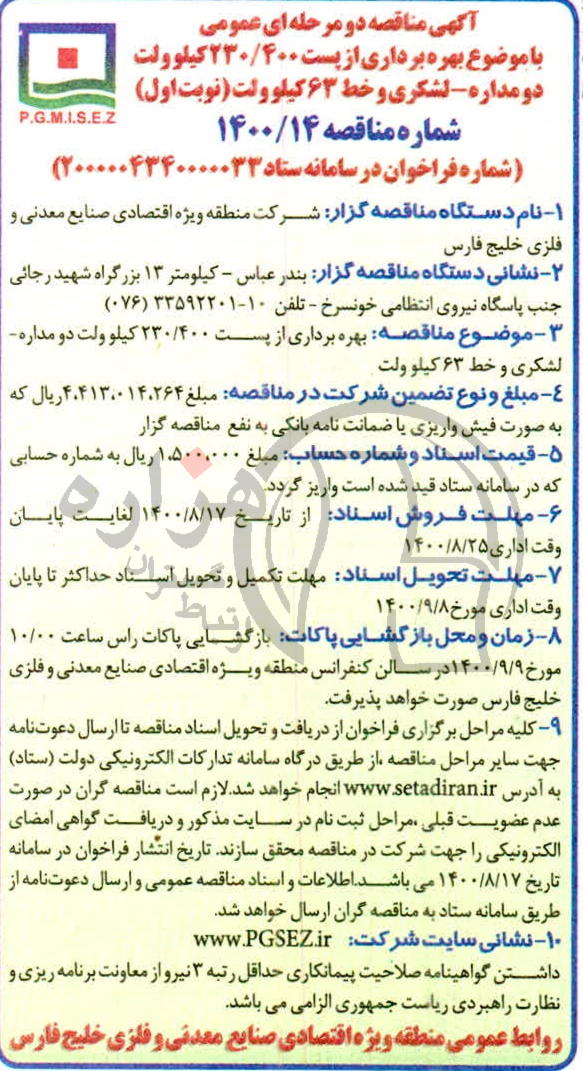 آگهی مناقصه دو مرحله ای عمومی
با موضوع بهره برداری از پست ۲۳۰/۴۰۰ کیلو ولت
دو مداره - لشکری و خط ۶۳ کیلو ولت (نوبت اول)
P.G.M.I.S.E.Z
شماره مناقصه ۱۴۰۰/۱۴
(شماره فراخوان در سامانه ستاد ۲۰۰۰۰۰۴۳۴۰۰۰۰۰۳۳)
۱-نام دستگاه مناقصه گزار: شرکت منطقه ویژه اقتصادی صنایع معدنی و
فلزی خلیج فارس
۲-نشانی دستگاه مناقصه گزار: بندر عباس - کیلومتر ۱۳ بزرگراه شهید رجائی
جنب پاسگاه نیروی انتظامی خونسرخ - تلفن ۱۰-۳۳۵۹۲۲۰۱ (۰۷۶)
۳-موضوع مناقصه: بهره برداری از پست ۲۳۰/۴۰۰ کیلو ولت دو مداره-
لشکری و خط ۶۳ کیلو ولت
۴-مبلغ و نوع تضمین شرکت در مناقصه: مبلغ ۴،۴۱۳،۰۱۴،۲۶۴ ریال که
به صورت فیش واریزی یا ضمانت نامه بانکی به نفع مناقصه گزار
۵-قیمت اسناد و شماره حساب: مبلغ ۱،۵۰۰،۰۰۰ ریال به شماره حسابی
که در سامانه ستاد قید شده است واریز گردد.
۶-مهلت فروش اسناد: از تاریخ ۱۴۰۰/۸/۱۷ لغایت پایان
وقت اداری ۱۴۰۰/۸/۲۵
۷-مهلت تحویل اسناد: مهلت تکمیل و تحویل اسناد حداکثر تا پایان
وقت اداری مورخ ۱۴۰۰/۹/۸
۸-زمان و محل بازگشایی پاکات: بازگشایی پاکات راس ساعت ۱۰/۰۰
مورخ ۱۴۰۰/۹/۹ در سالن کنفرانس منطقه ویژه اقتصادی صنایع معدنی و فلزی
خلیج فارس صورت خواهد پذیرفت.
۹-کلیه مراحل برگزاری فراخوان از دریافت و تحویل اسناد مناقصه تا ارسال دعوت‌نامه
جهت سایر مراحل مناقصه ،از طریق درگاه سامانه تدارکات الکترونیکی دولت (ستاد)
به آدرس www.setadiran.ir انجام خواهد شد.لازم است مناقصه گران در صورت
عدم عضویت قبلی ،مراحل ثبت نام در سایت مذکور و دریافت گواهی امضای
الکترونیکی را جهت شرکت در مناقصه محقق سازند. تاریخ انتشار فراخوان در سامانه
تاریخ ۱۴۰۰/۸/۱۷ می باشد.اطلاعات و اسناد مناقصه عمومی و ارسال دعوت‌نامه از
طریق سامانه ستاد به مناقصه گران ارسال خواهد شد.
۱۰-نشانی سایت شرکت: www.PGSEZ.ir
داشتن گواهینامه صلاحیت پیمانکاری حداقل رتبه ۳ نیرو از معاونت برنامه ریزی و
نظارت راهبردی ریاست جمهوری الزامی می باشد.
روابط عمومی منطقه ویژه اقتصادی صنایع معدنی و فلزی خلیج فارس
هزاره
ارتباط گستران